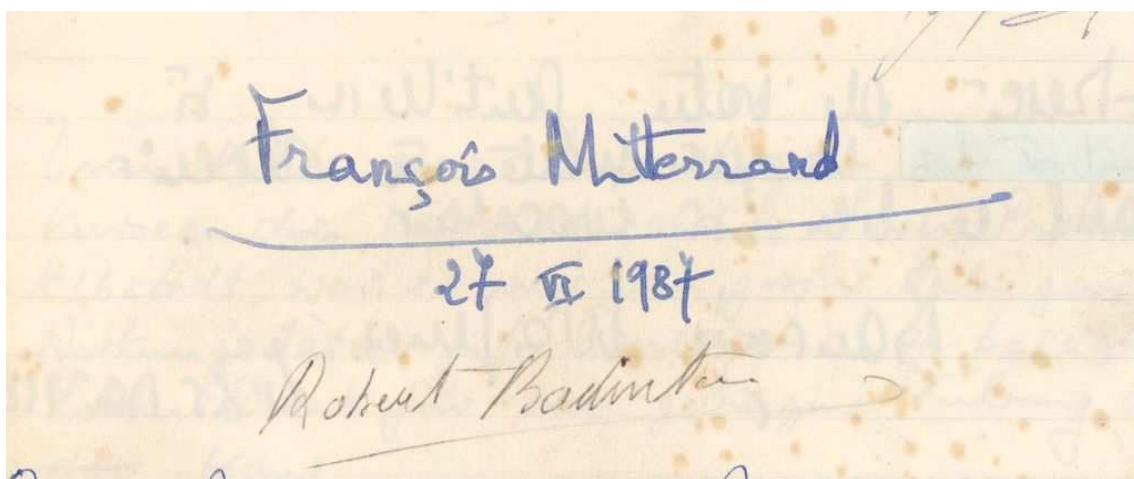 François Mitterrand
27 VI 1987
Robert Badinter